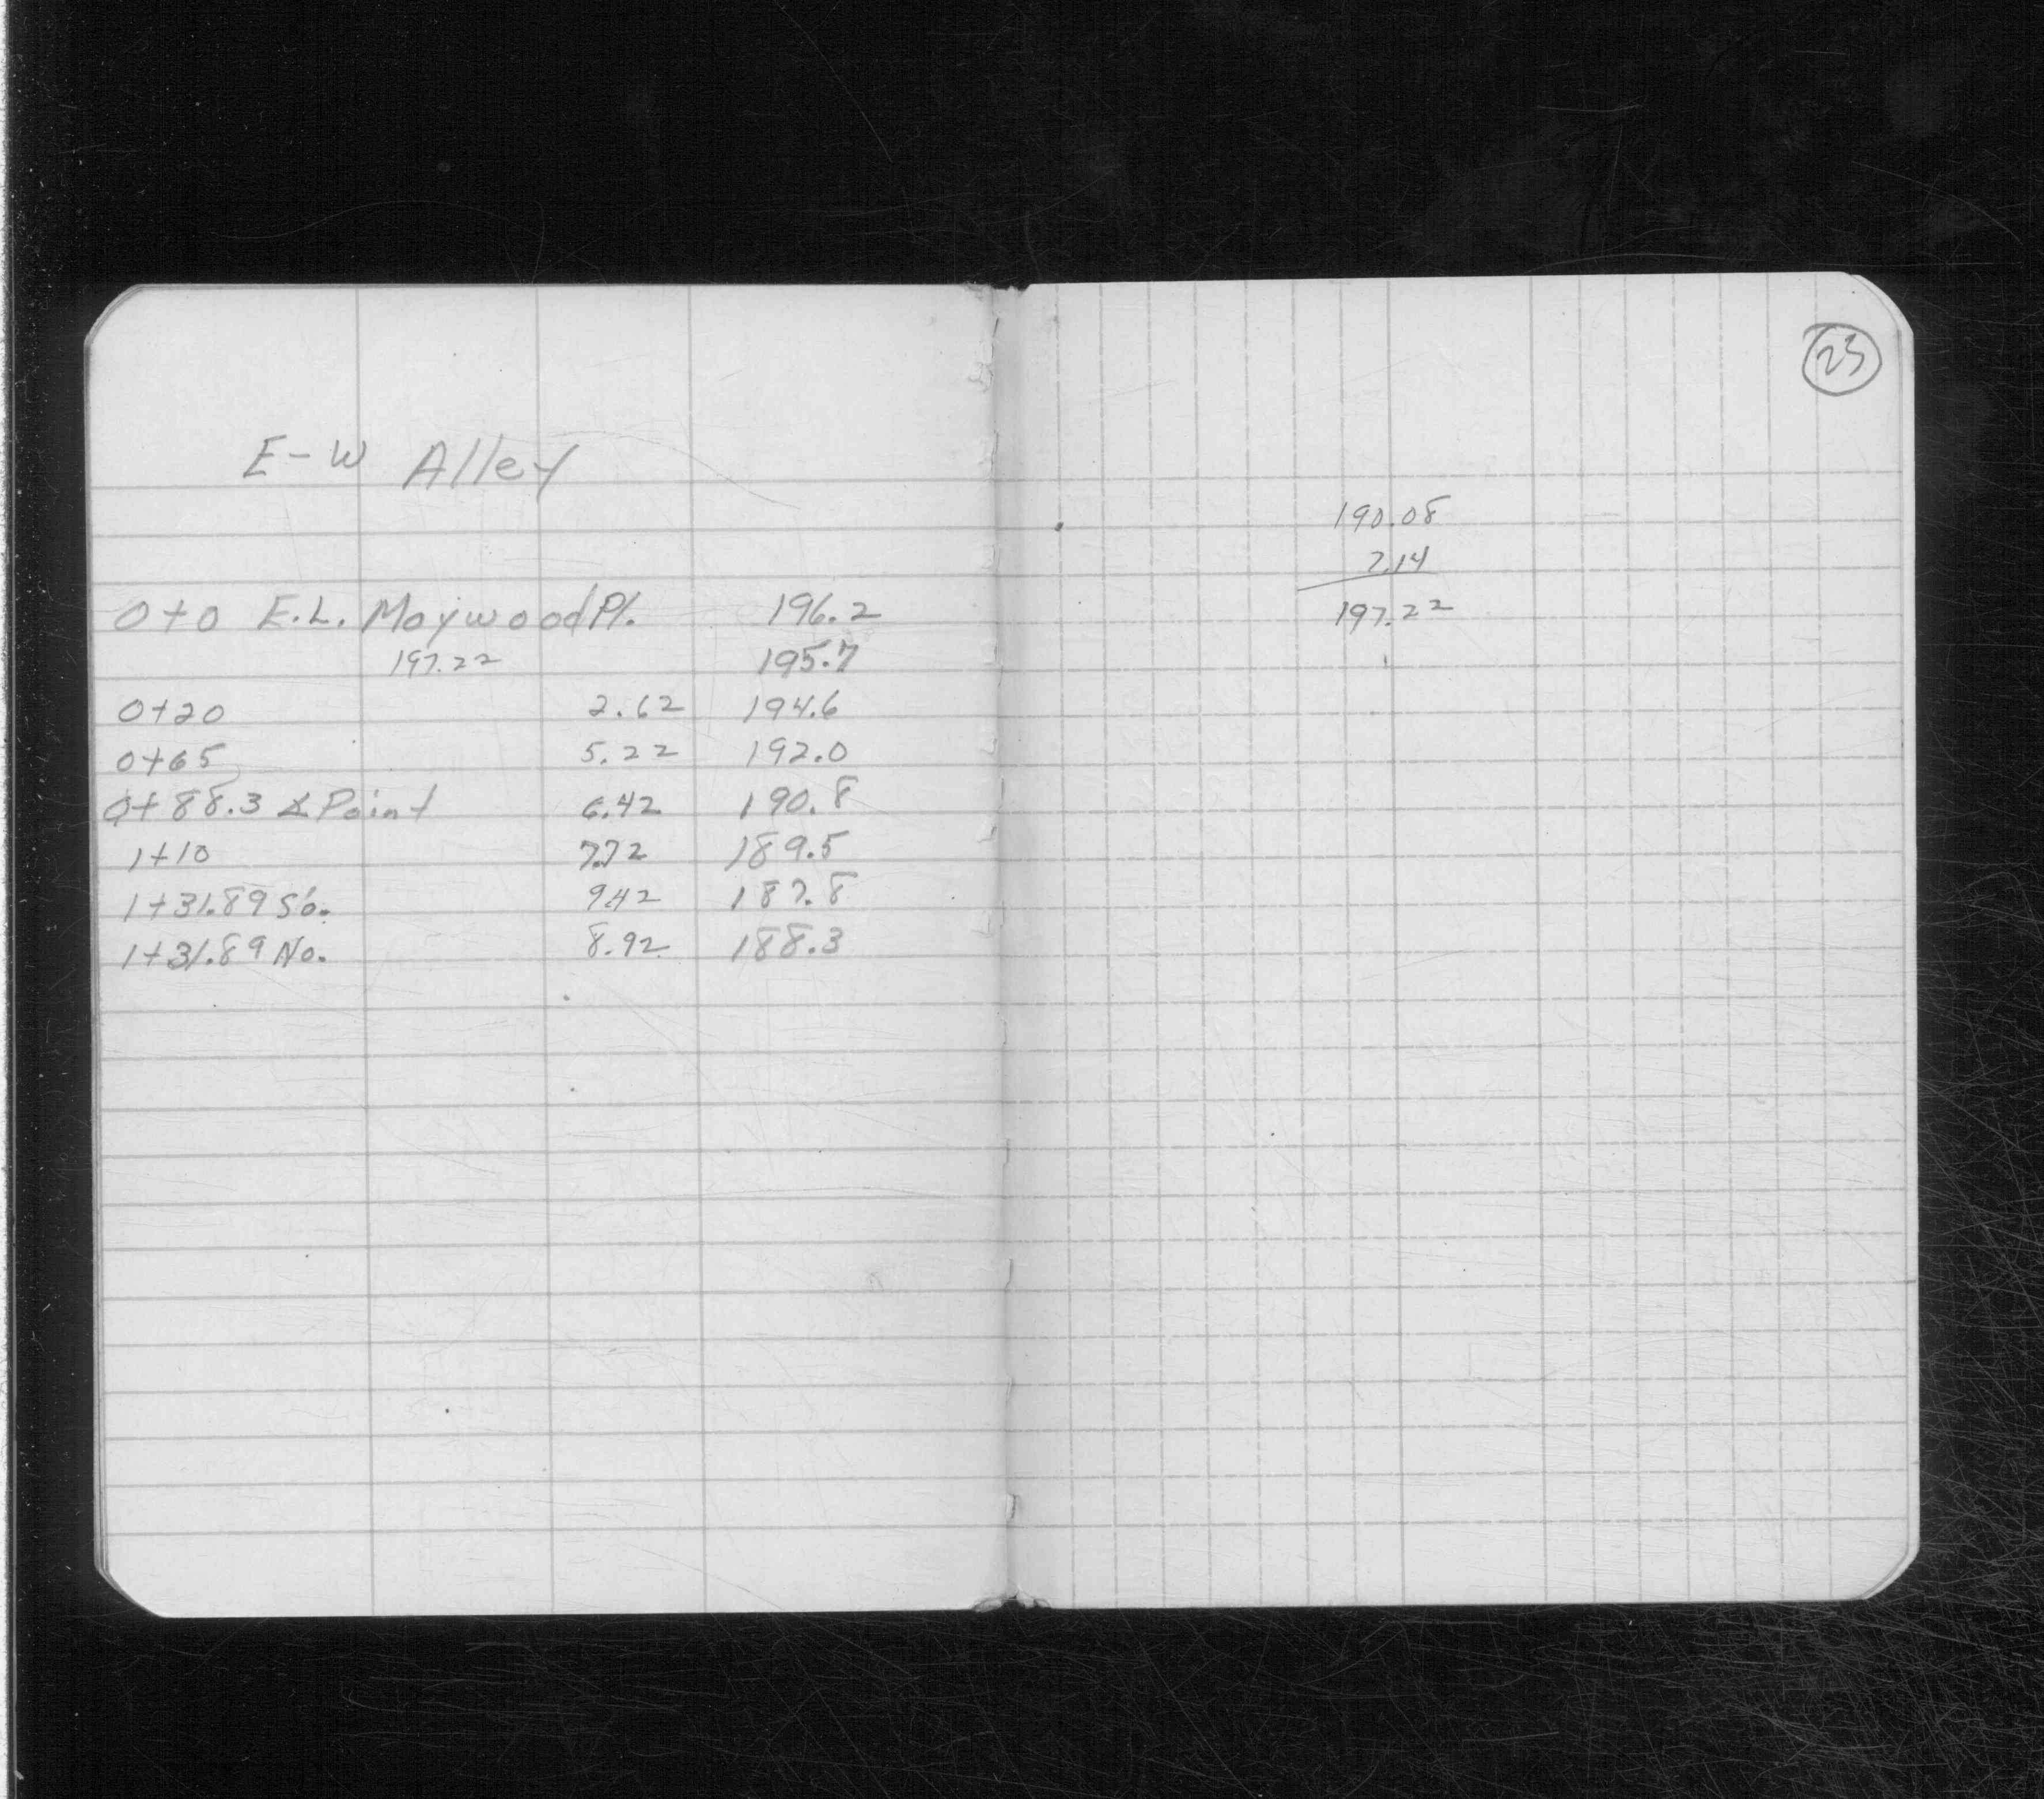 E-W Alley
0+0 E.L. Maywood Pl. 196.2
197.22 195.7
0+20 2.62 194.6
0+65 5.22 192.0
0+88.3 ∡ Point 6.42 190.8
1+10 7.72 189.5
1+31.89 So. 9.42 187.8
1+31.89 No. 8.92 188.3
23
190.08
7.14
197.22